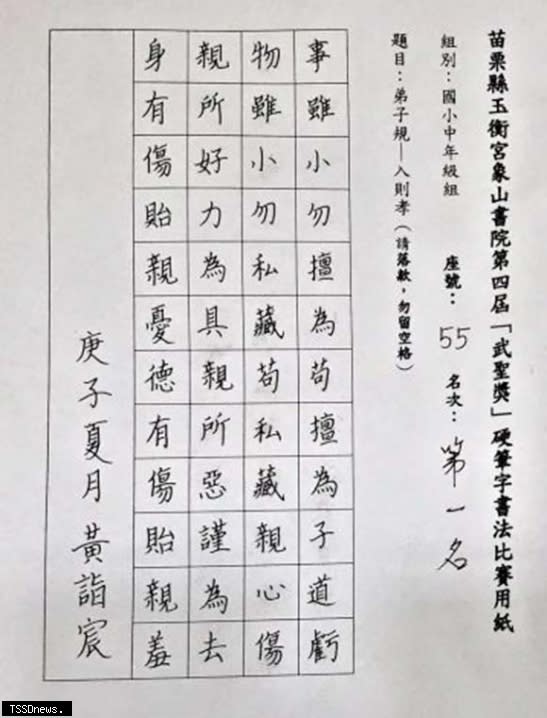 苗栗縣玉衡宮象山書院第四屆「武聖獎」硬筆字書法比賽用紙
組別：國小中年級組 座號：55 名次：第一名
題目：弟子規—入則孝（請落款，勿留空格）
事雖小勿擅為苟擅為子道虧
物雖小勿私藏苟私藏親心傷
親所好力為具親所惡謹為去
身有傷貽親憂德有傷貽親羞
庚子夏月黃詣宸
TSSDnews.